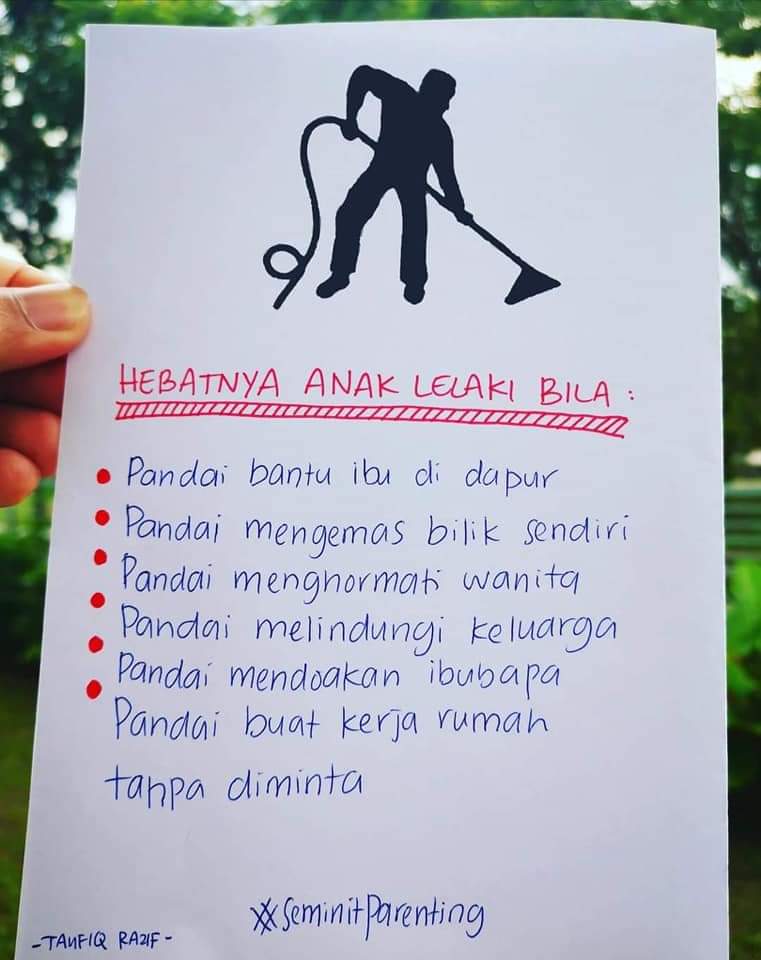 HEBATNYA ANAK LELAKI BILA :
• Pandai bantu ibu di dapur
• Pandai mengemas bilik sendiri
• Pandai menghormati wanita
• Pandai melindungi keluarga
• Pandai mendoakan ibubapa
• Pandai buat kerja rumah
tanpa diminta
#SeminitParenting
-TAUFIQ RAZIF-